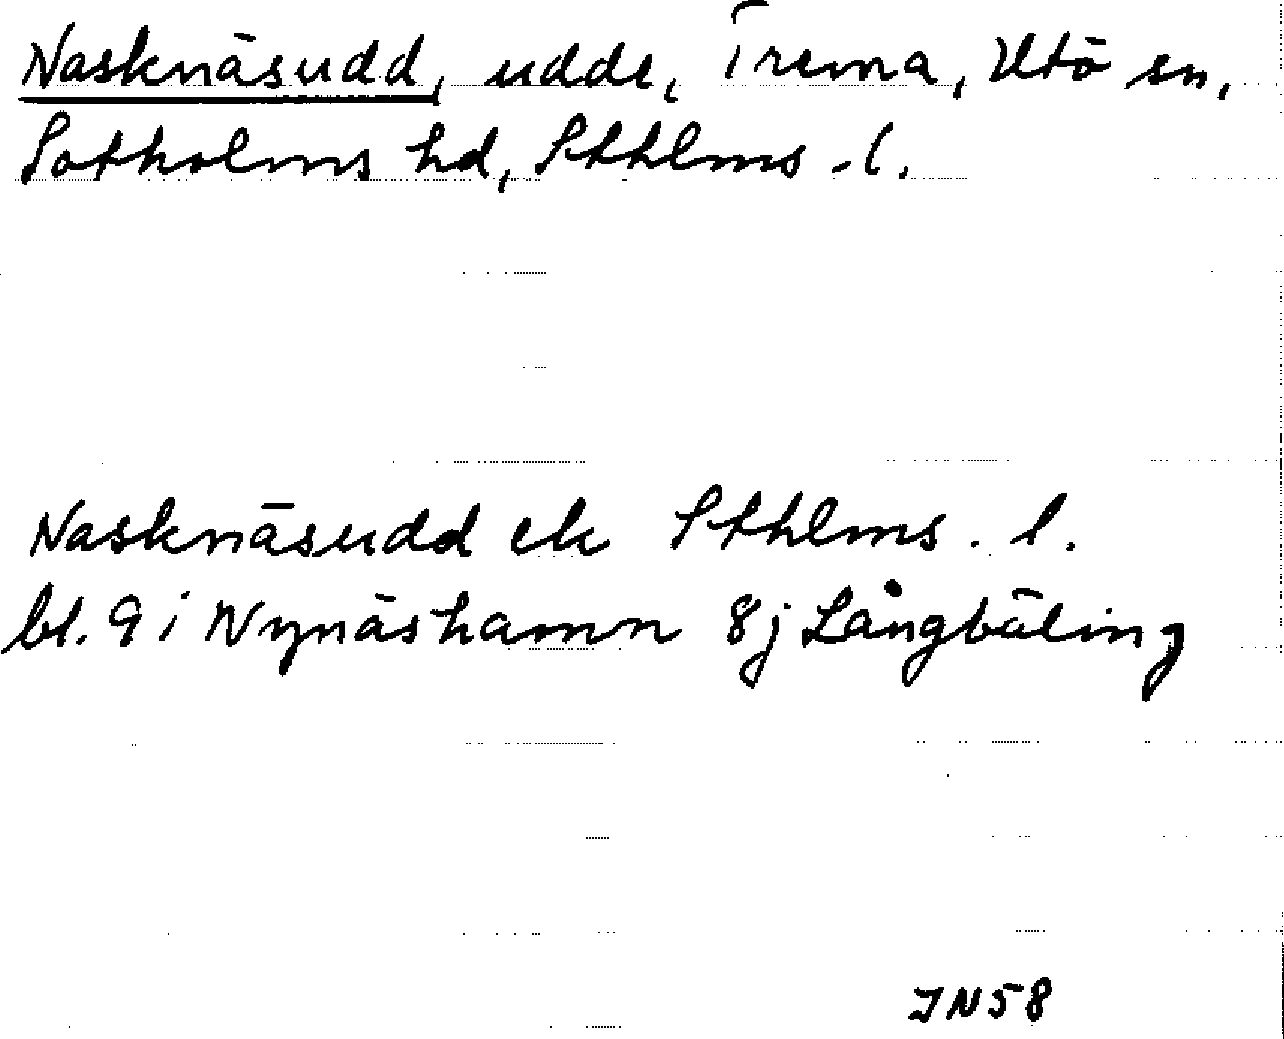 Nasknäsudd, udde, Trema, Utö sn,
Sotholms hd, Sthlms. l.
Nasknäsudd ek Sthlms. l.
bl. 9 i Nynäshamn 8j Långbäling
JN58